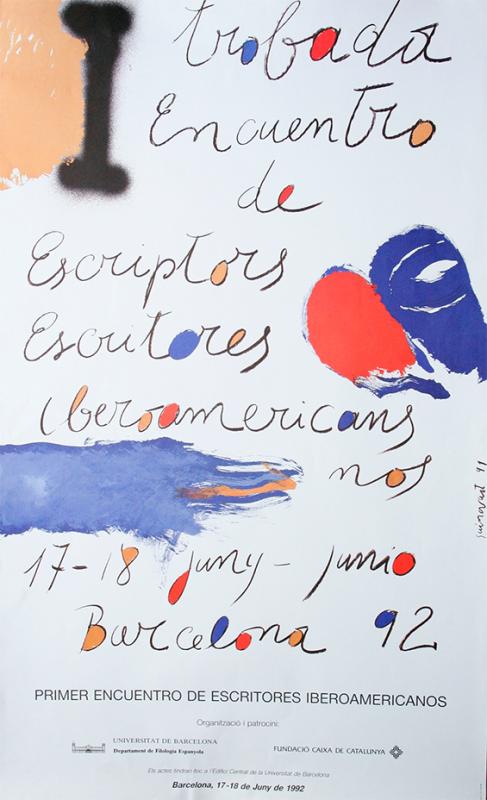 I trobada
Encuentro
de
Escriptors
Escritores
iberoamericans
nos
guinovart 91
17-18 juny - junio
Barcelona 92
PRIMER ENCUENTRO DE ESCRITORES IBEROAMERICANOS
Organització i patrocini:
UNIVERSITAT DE BARCELONA
Departament de Filologia Espanyola
FUNDACIÓ CAIXA DE CATALUNYA
Els actes tindran lloc a l'Edifici Central de la Universitat de Barcelona
Barcelona, 17-18 de Juny de 1992